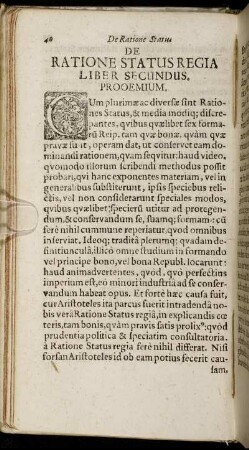 40 De Ratione Status
DE
RATIONE STATUS REGIA
LIBER SECUNDUS.
PROOEMIUM.
CUm plurimæ ac diversæ sint Ratio-
nes Status, & media modiq; discre-
pantes, qvibus qvælibet sex forma-
rũ Reip. tam qvæ bonæ, qvàm qvæ
pravæ sunt, operam dat, ut conservet eam do-
minandi rationem, qvam seqvitur: haud video,
qvomodo illorum scribendi methodus possit
probari, qvi hanc exponentes materiam, vel in
generalibus substiterunt, ipsis speciebus reli-
ctis, vel non considerarunt speciales modos,
qvibus qvælibet species ũ utitur ad protegen-
dum, & conservandum se, suamq; formam: cũ
ferè nihil cummune reperiatur, qvod omnibus
inserviat. Ideoq; traditâ plerumq; qvadam de-
finitiunculâ, illicò omne studium in formando
vel principe bono, vel bona Republ. locarunt:
haud animadvertentes, qvòd, qvò perfectius
imperium est, eò minori industriâ ad se conser-
vandum habeat opus. Et fortè hæc causa fuit,
cur Aristoteles ita parcus fuerit in tradenda no-
bis verâ Ratione Status regiâ, in explicandis cœ-
teris, tam bonis, qvàm pravis satis prolix⁹: qvòd
prudentia politica & speciatim consultatoria,
à Ratione Status regia ferè nihil differat. Nisi
forsan Aristoteles id ob eam potius fecerit cau-
sam,